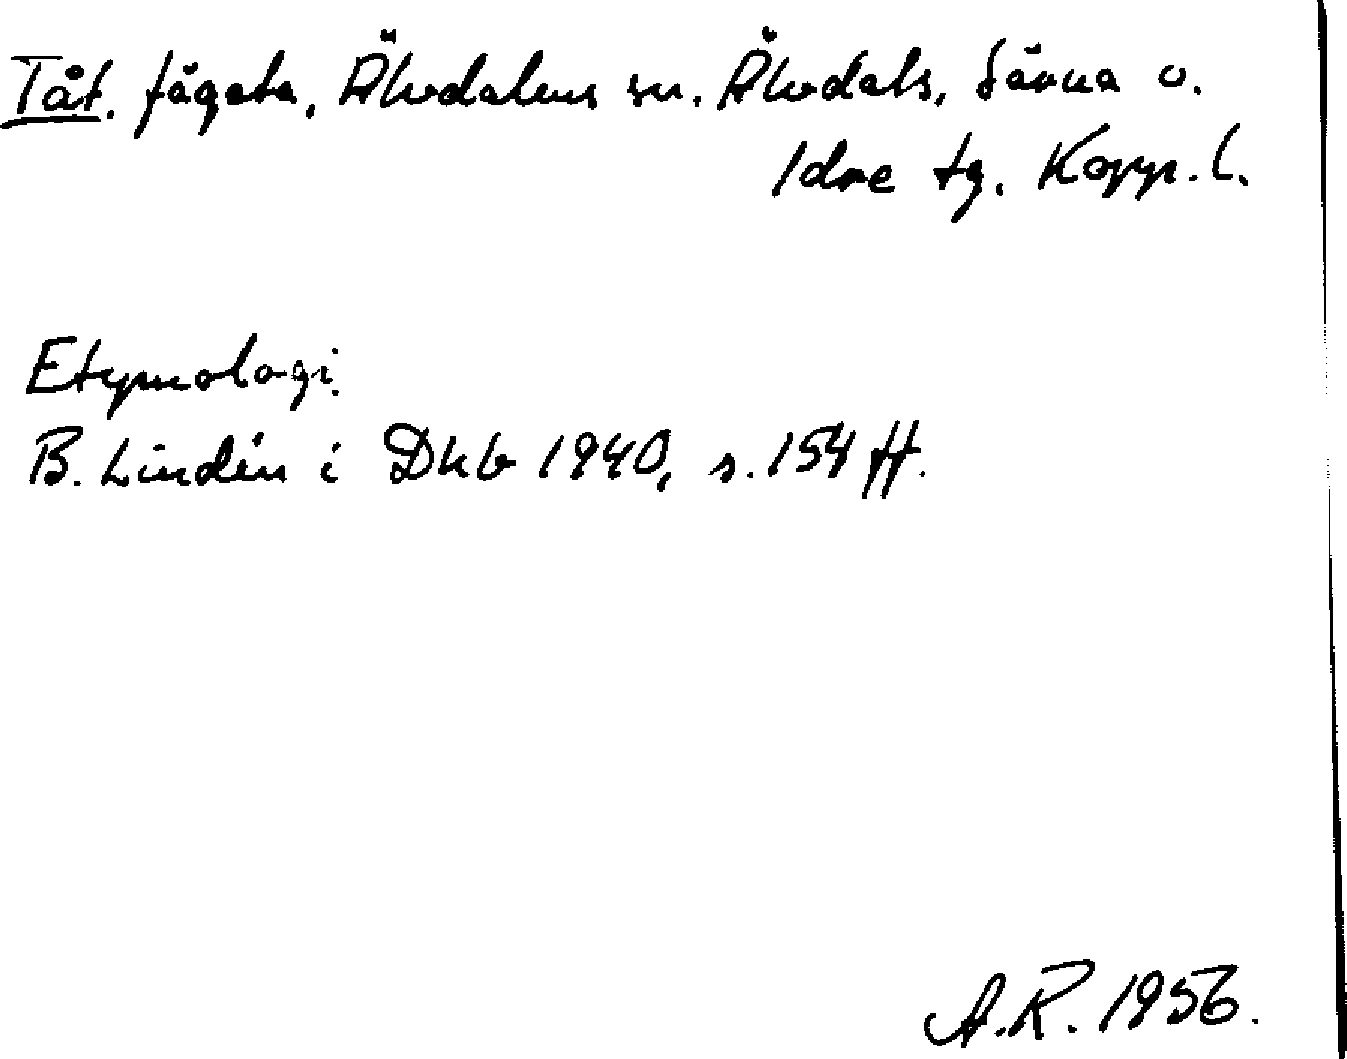 Tåt. fägata, Älvdalens sn. Älvdals, Särna o.
Idre tg. Kopp. l.
Etymologi.
B. Lindén i Dhb 1940, s. 154 ff.
A.R. 1956.